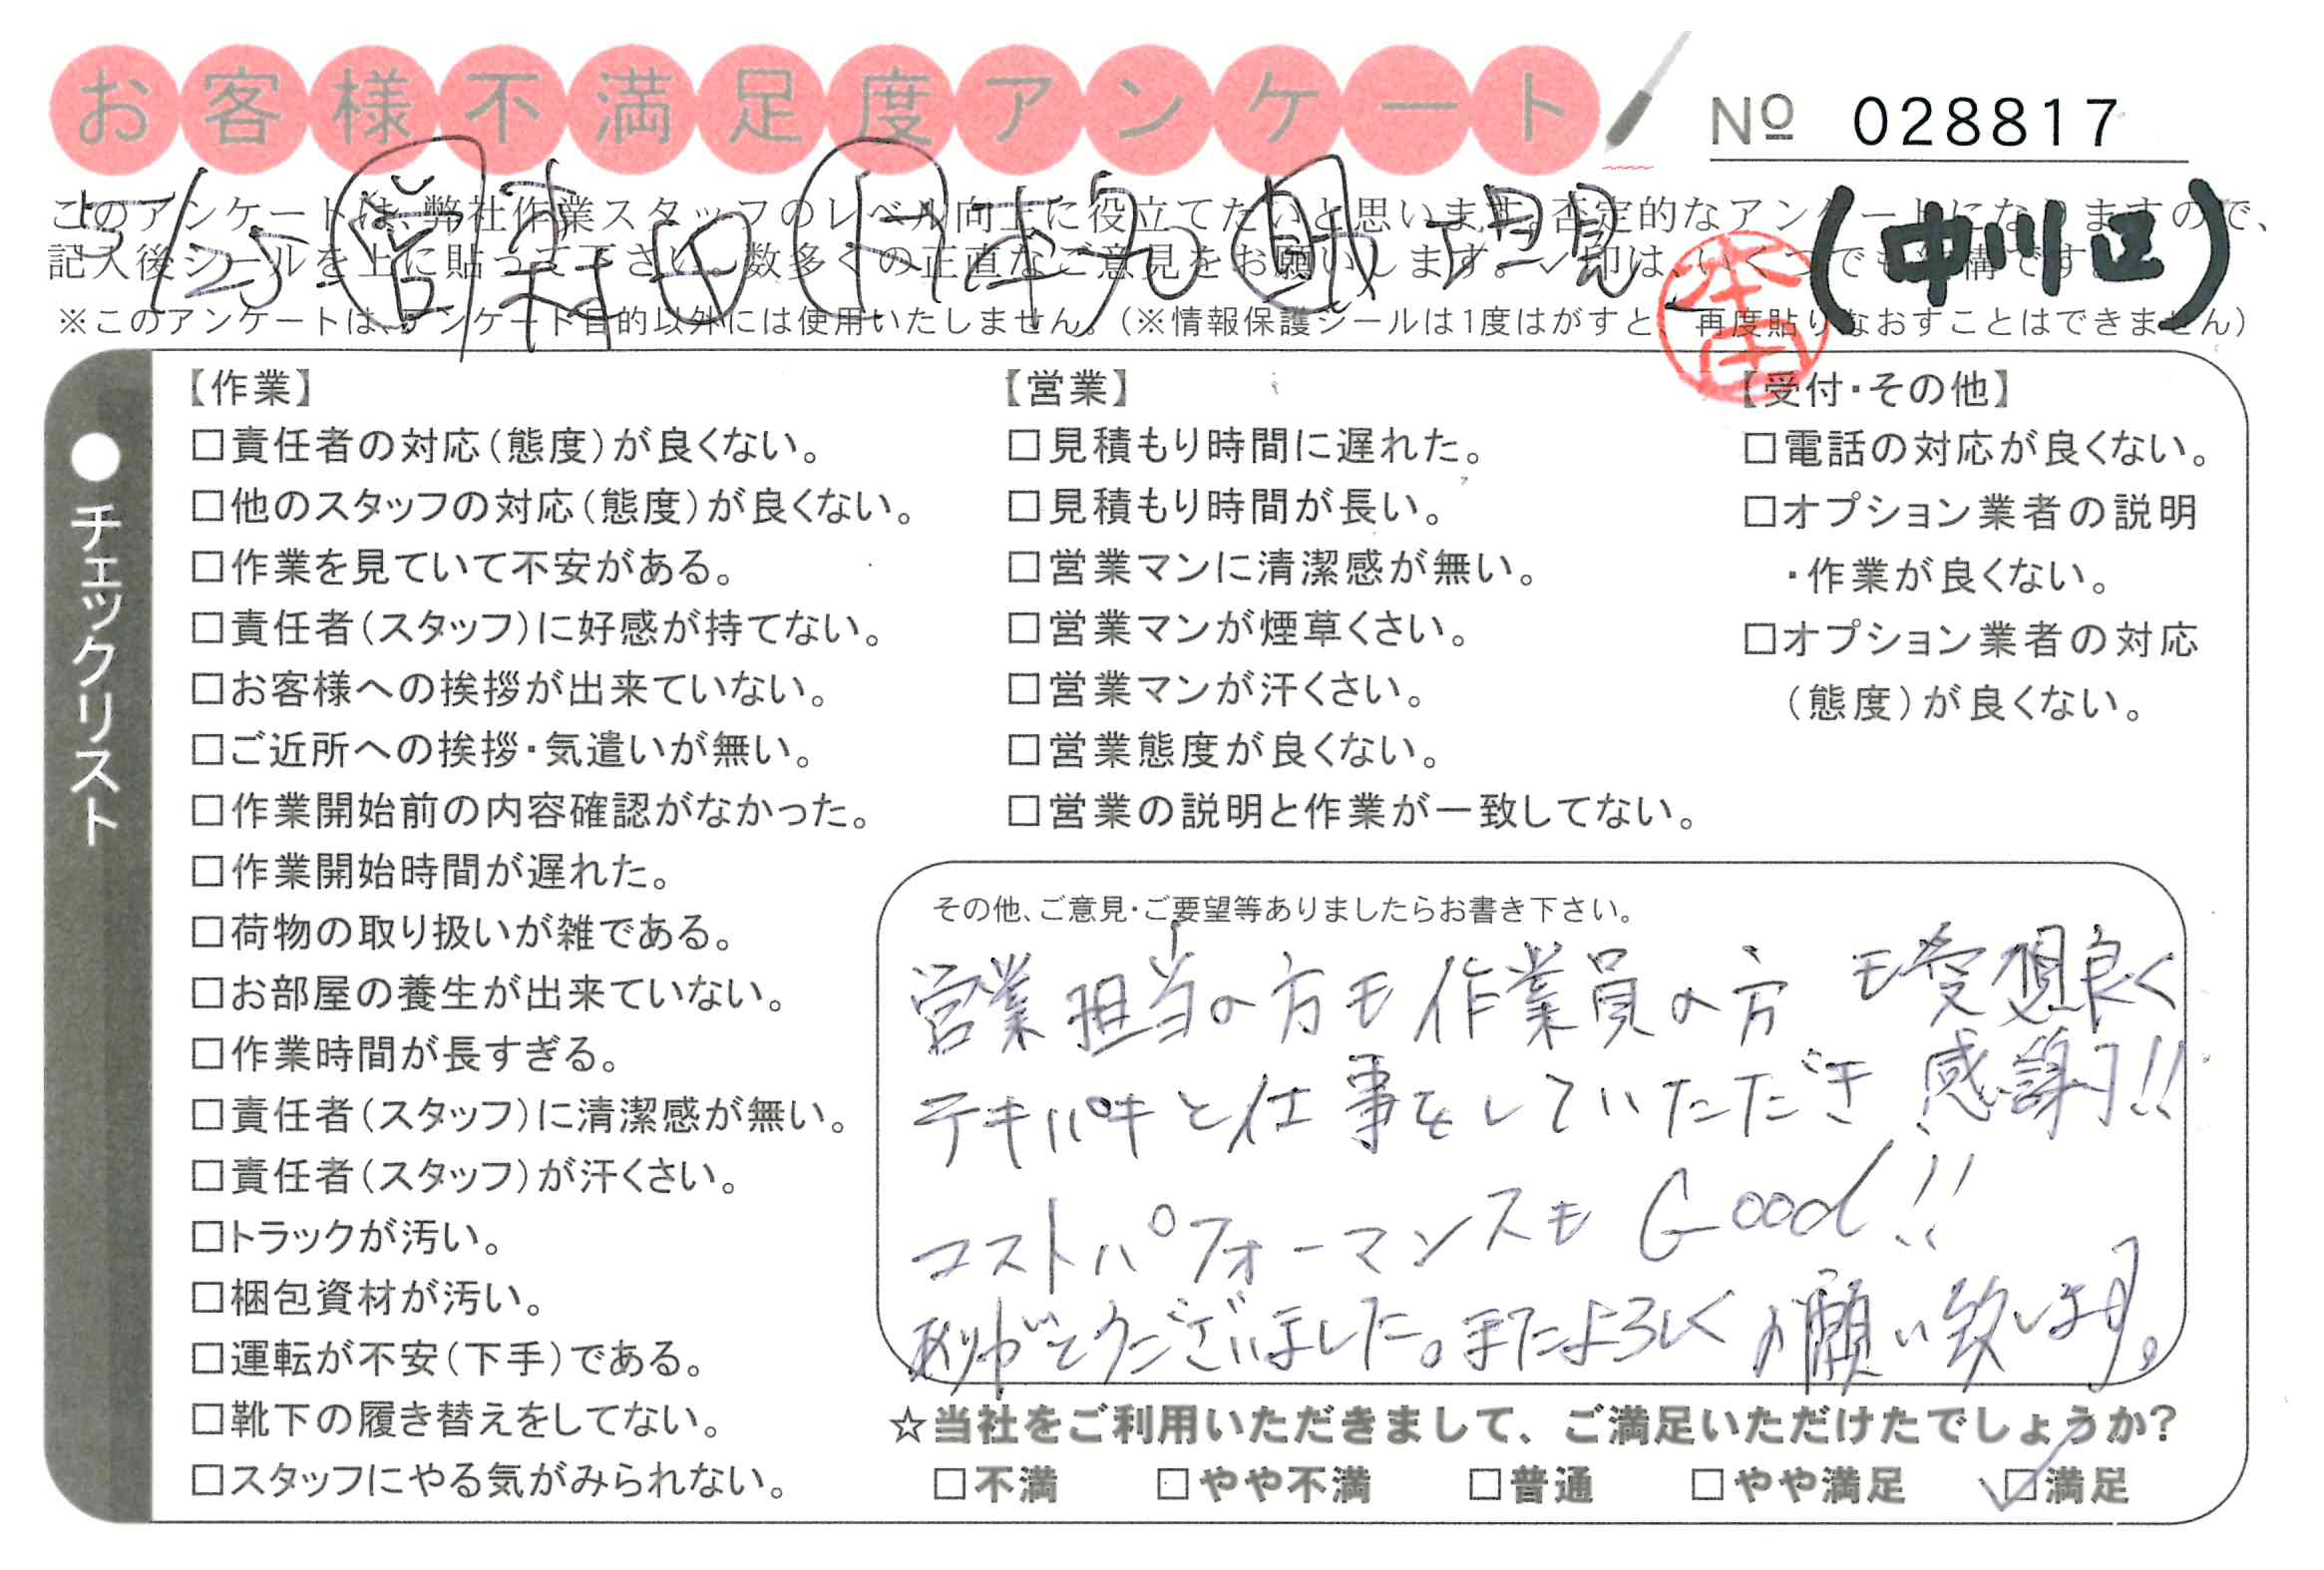 お客様不満足度アンケート
№ 028817
このアンケートは、弊社作業スタッフのレベル向上に役立てたいと思います。否定的なアンケートになりますので、
記入後シールを上に貼って下さい。数多くの正直なご意見をお願いします。✓印は、いくつでも結構です。
5/25 営 村田
(中川区)
※このアンケートは、アンケート目的以外には使用いたしません。(※情報保護シールは1度はがすと、再度貼りなおすことはできません)
●チェックリスト
【作業】
□責任者の対応(態度)が良くない。
□他のスタッフの対応(態度)が良くない。
□作業を見ていて不安がある。
□責任者(スタッフ)に好感が持てない。
□お客様への挨拶が出来ていない。
□ご近所への挨拶・気遣いが無い。
□作業開始前の内容確認がなかった。
□作業開始時間が遅れた。
□荷物の取り扱いが雑である。
□お部屋の養生が出来ていない。
□作業時間が長すぎる。
□責任者(スタッフ)に清潔感が無い。
□責任者(スタッフ)が汗くさい。
□トラックが汚い。
□梱包資材が汚い。
□運転が不安(下手)である。
□靴下の履き替えをしてない。
□スタッフにやる気がみられない。
【営業】
□見積もり時間に遅れた。
□見積もり時間が長い。
□営業マンに清潔感が無い。
□営業マンが煙草くさい。
□営業マンが汗くさい。
□営業態度が良くない。
□営業の説明と作業が一致してない。
【受付・その他】
□電話の対応が良くない。
□オプション業者の説明
・作業が良くない。
□オプション業者の対応
(態度)が良くない。
その他、ご意見・ご要望等ありましたらお書き下さい。
営業担当の方も作業員の方も愛想良く
テキパキと仕事をしていただき感謝!!
コストパフォーマンスも Good!!
ありがとうございました。またよろしくお願い致します。
☆当社をご利用いただきまして、ご満足いただけたでしょうか?
□不満 □やや不満 □普通 □やや満足 ☑満足